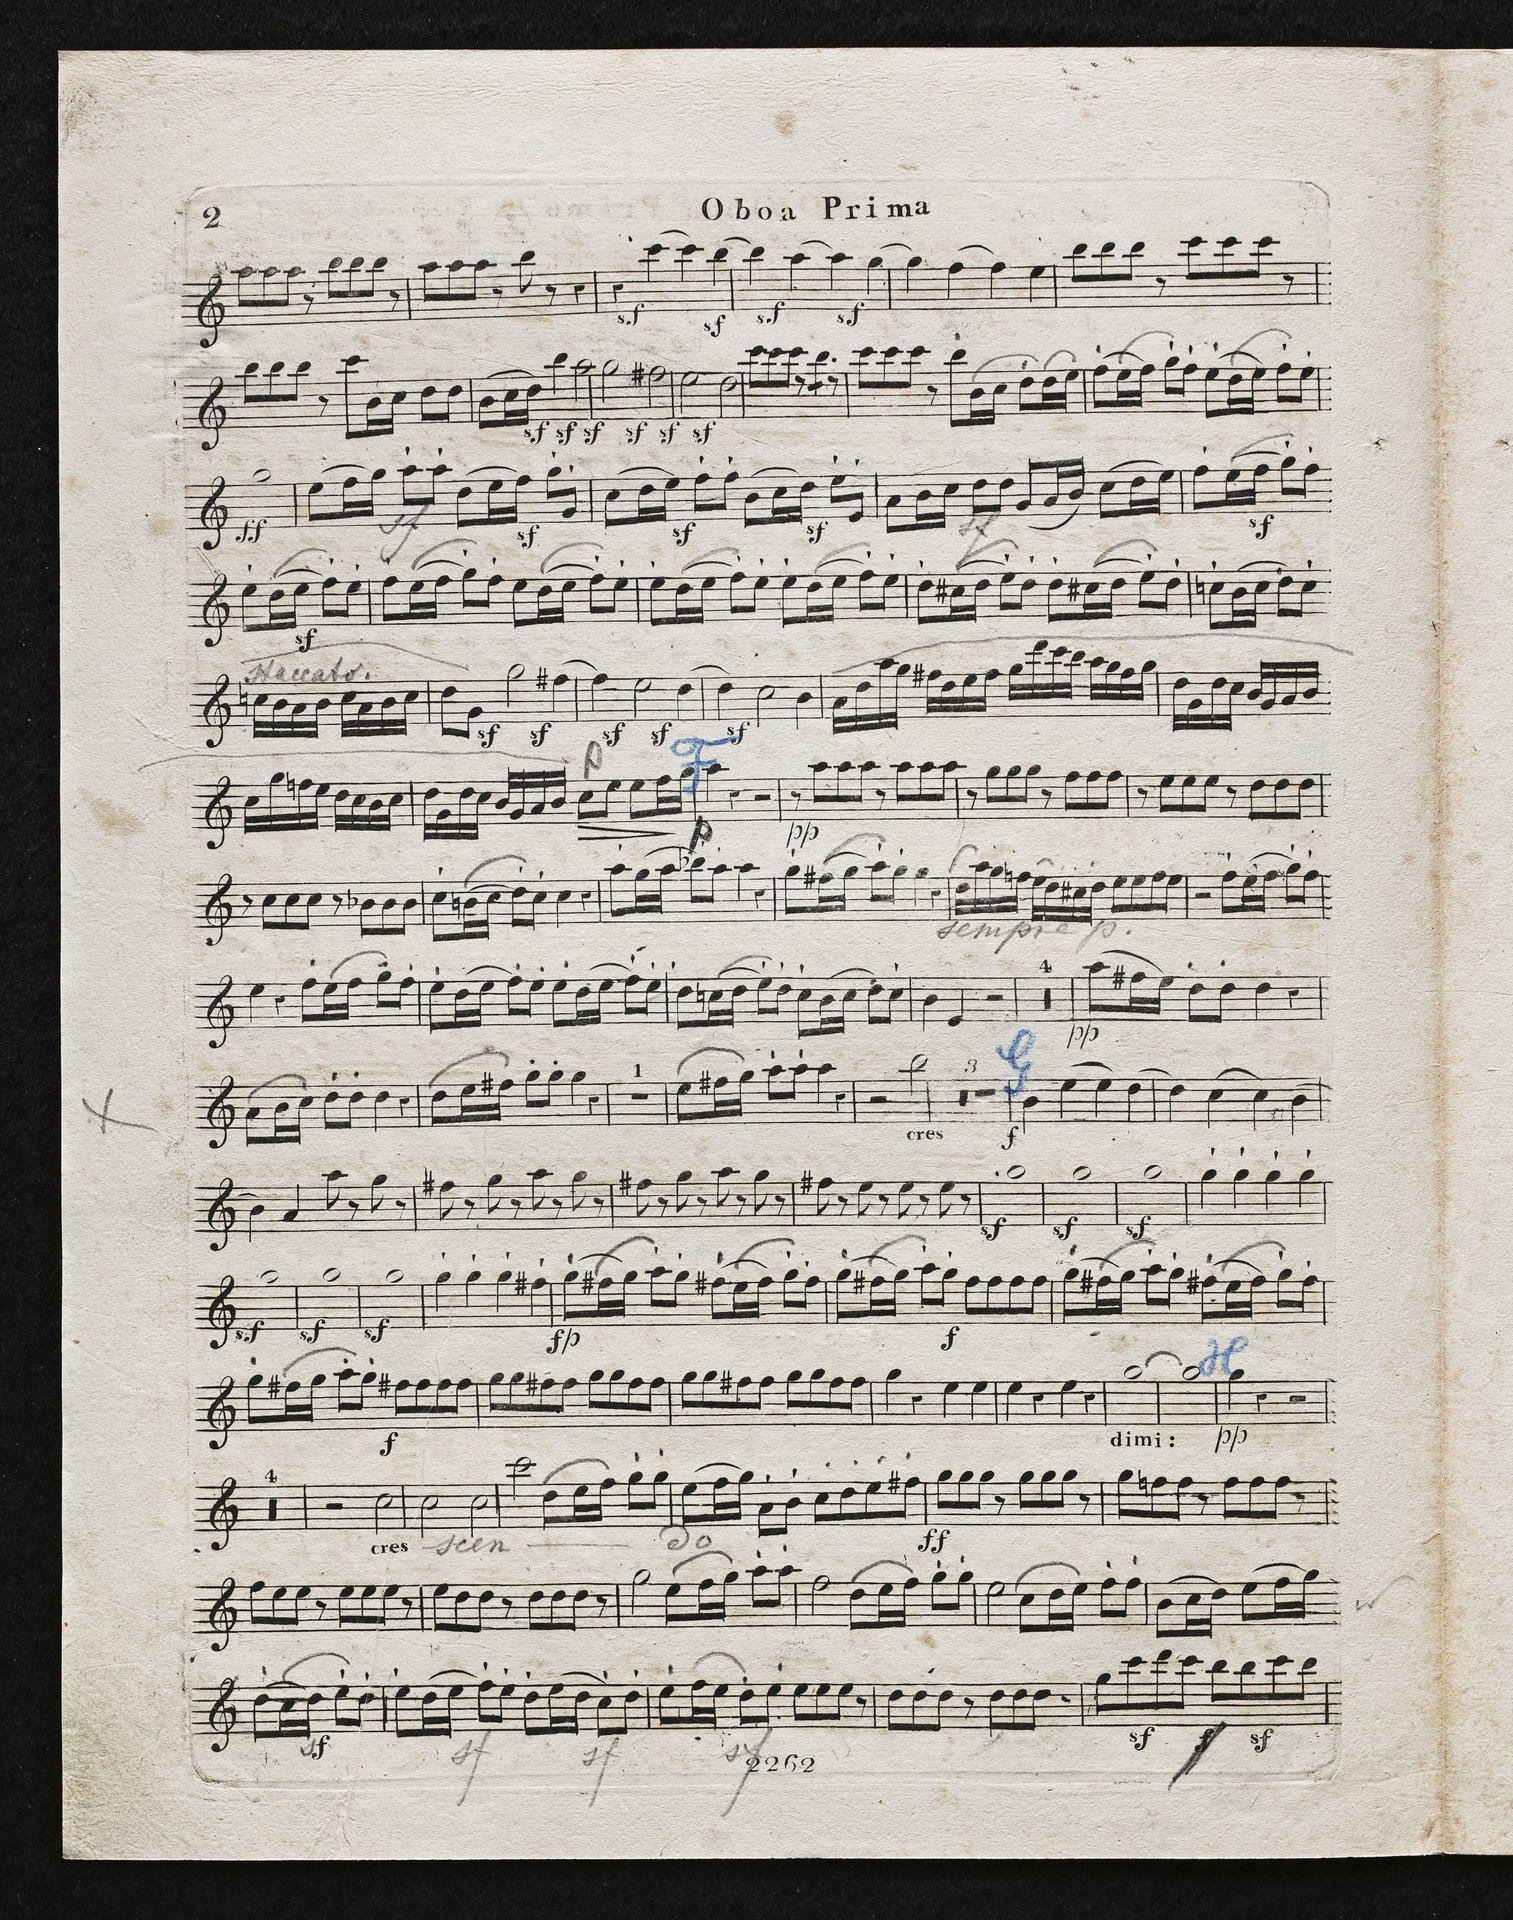 2 Oboa Prima
s.f sf s.f s.f
sf sf sf sf sf sf
ff sf sf sf sf sf sf
sf
staccato.
sf sf sf sf sf
p F
p pp
sempre p.
4
pp
1 3 G
cres f
sf sf sf
s.f s.f s.f fp f
H
f dimi: pp
4
cres scen do ff
sf sf sf sf sf f sf
2262